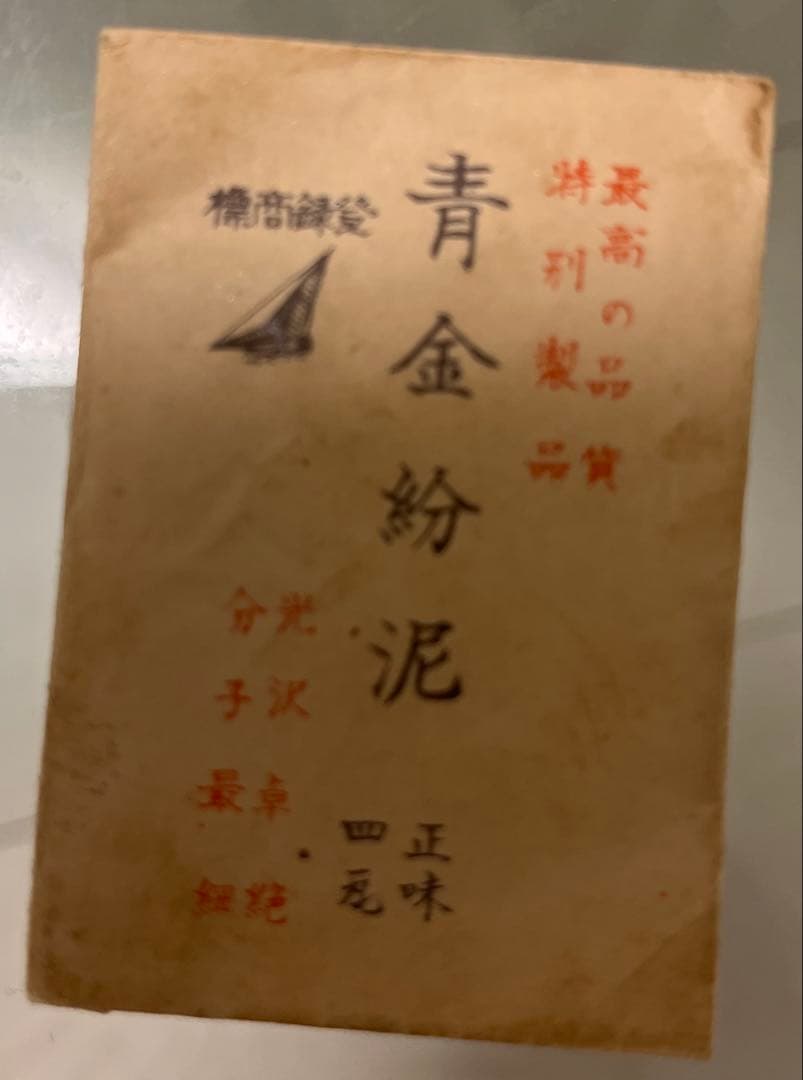 最高の品質
特別製品
青金紛泥
登録商標
光沢卓絶
分子最細
正味
四瓦